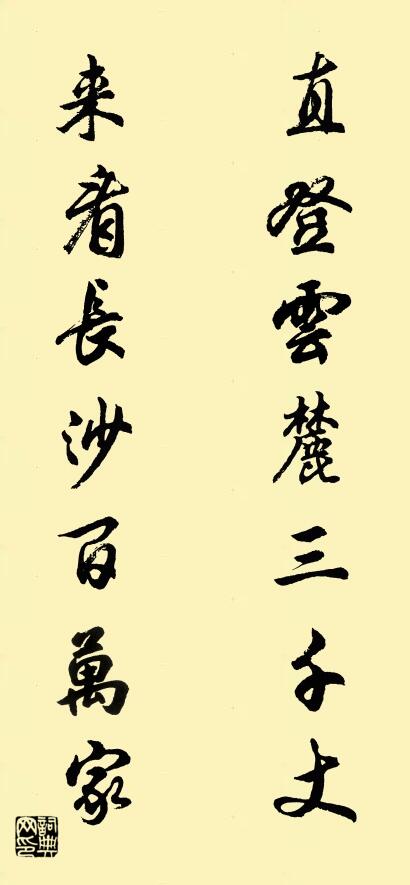 直登雲麓三千丈
来看長沙百萬家
詞典
网印